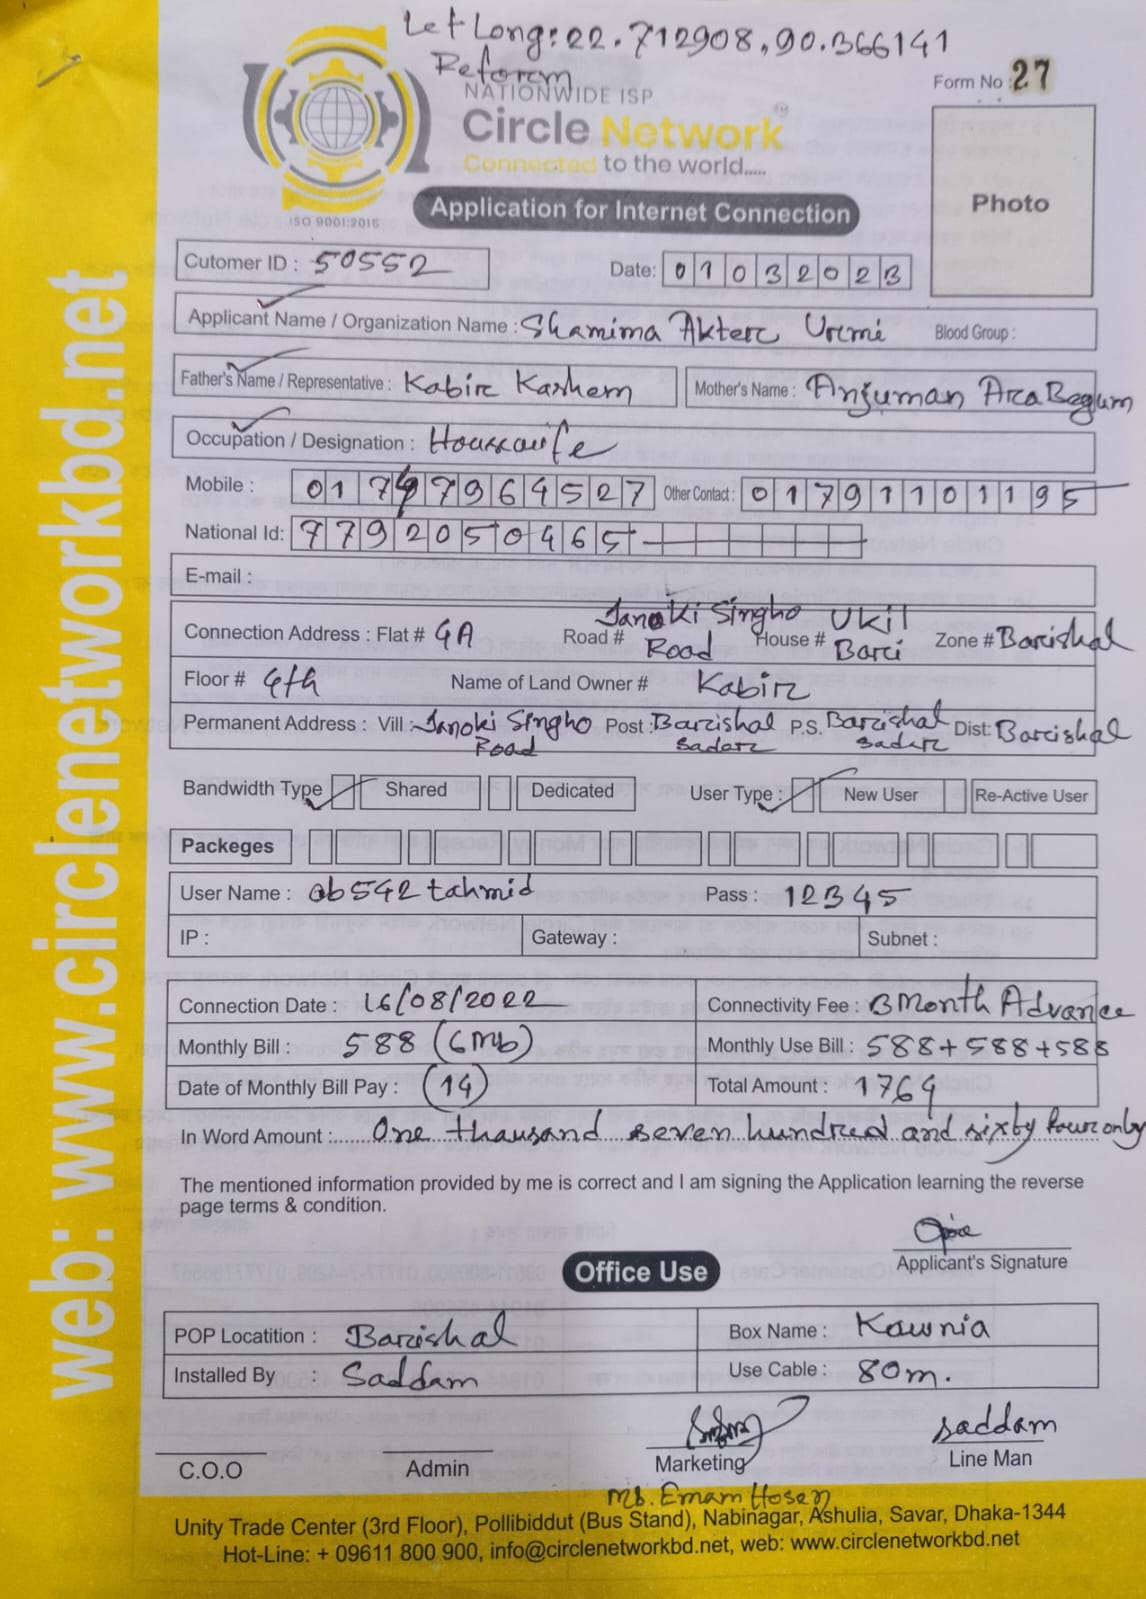 Let Long: 22.712908, 90.366141
Reform
NATIONWIDE ISP
Form No : 27
Circle Network
Connected to the world.....
ISO 9001:2015
Application for Internet Connection
Photo
Cutomer ID : 50552
Date: 01032023
Applicant Name / Organization Name : Shamima Akter Urmi Blood Group :
Father's Name / Representative : Kabir Kashem Mother's Name : Anjuman Ara Begum
Occupation / Designation : Housewife
Mobile : 01797964527 Other Contact : 01791101195
National Id: 7792050465
E-mail :
Connection Address : Flat # 4A Road # Janoki Singho Road House # Ukil Bari Zone # Barishal
Floor # 4th Name of Land Owner # Kabir
Permanent Address : Vill : Janoki Singho Road Post : Barishal Sadar P.S. Barishal Sadar Dist: Barishal
Bandwidth Type Shared Dedicated User Type : New User Re-Active User
Packeges
User Name : ab542tahmid Pass : 12345
IP : Gateway : Subnet :
Connection Date : 16/08/2022 Connectivity Fee : 3 Month Advance
Monthly Bill : 588 (6Mb) Monthly Use Bill : 588+588+588
Date of Monthly Bill Pay : (14) Total Amount : 1764
In Word Amount :...... One thausand seven hundred and sixty four only
The mentioned information provided by me is correct and I am signing the Application learning the reverse
page terms & condition.
Applicant's Signature
Office Use
POP Locatition : Barishal Box Name : Kawnia
Installed By : Saddam Use Cable : 80m.
saddam
C.O.O Admin Marketing Line Man
Md. Emam Hosen
Unity Trade Center (3rd Floor), Pollibiddut (Bus Stand), Nabinagar, Ashulia, Savar, Dhaka-1344
Hot-Line: + 09611 800 900, info@circlenetworkbd.net, web: www.circlenetworkbd.net
web: www.circlenetworkbd.net